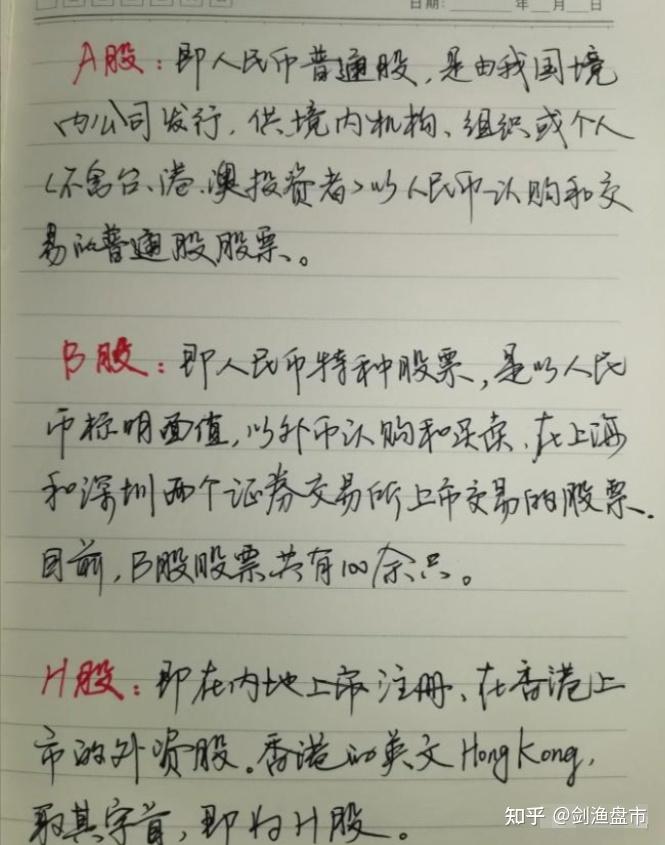 日期: 年 月 日
A股：即人民币普通股，是由我国境
内公司发行，供境内机构、组织或个人
(不含台、港、澳投资者)以人民币认购和交
易的普通股股票。
B股：即人民币特种股票，是以人民
币标明面值，以外币认购和买卖，在上海
和深圳两个证券交易所上市交易的股票.
目前，B股股票共有100余只。
H股：即在内地上市注册、在香港上
市的外资股。香港的英文Hong Kong,
取其字首，即为H股。
知乎 @剑渔盘市